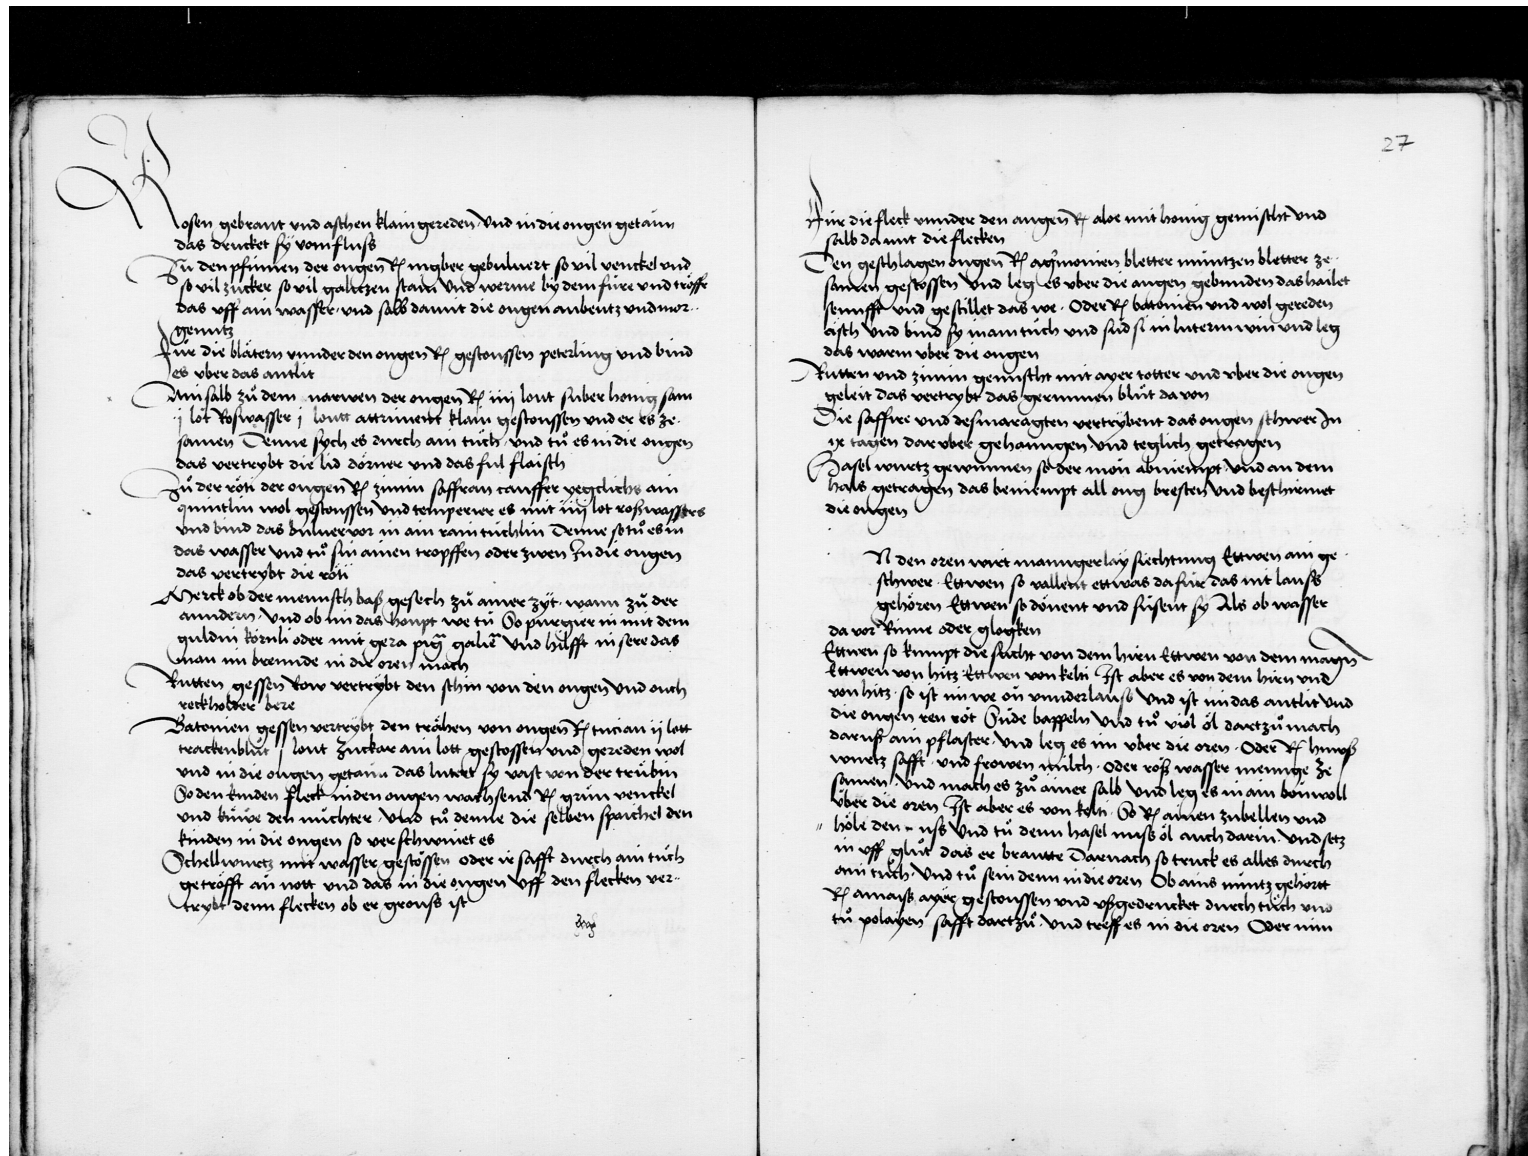 Rosen gebrant vnd aschen klain gereden vnd in die ougen getaun
das drucket sÿ vom fluss
Zu den pfinnen der ougen R ingber gebuluert so vil venckel vnd
so vil zucker so vil galitzen stain vnd werme bÿ dem füre vnd tröff
das vff ain wasser vnd salb damit die ougen anbentz vnd mor..
gentz
Für die blätern vnnder den ougen R gestoussen peterling vnd bind
es vber das antlit
Ain salb zů dem narwen der ougen R iiij lout suber honig sam
ij lot Roswasser j loutt attriment klain gestoussen vnd er es ze.
samen Denne sÿch es durch ain tuch vnd tů es in die ougen
das vertrybt die lid dörner vnd das ful flaisch
Zů der röti der ougen R zimin saffran cauffer yegclichs ain
quintlin wol gestoussen vnd temperier es mit iiij lot roßwassers
vnd bind das buluer vor in ain rain tüchlin Denne so tů es in
das wasser vnd tů sin ainen tropffen oder zwen In die ougen
das vertrybt die röti
Merck ob der mennsch baß gesech zů ainer zÿt wann zů der
anndern Vnd ob im das houpt we tů So purgier in mit dem
guldin körnli oder mit gera pig galie Vnd hilfft in sere das
man im brennde in die oren mach
Rutten gessen Row vertrybt den schin von den ougen Vnd ouch
reckholder bere
Batonien gessen vertrÿbt den trähen von ougen R tucian ij lott
trackenblůt j lout Zuckar ain lott gestossen vnd gereden wol
vnd in die ougen getaun das lutert sÿ vast von der trübin
So den kinden fleck in den ougen wachsend R grün venckel
vnd küwe den nüchter Vnd tů denne die selben spaichel den
kinden in die ougen so verschwinet es
Schellwurtz mit wasser gestössen oder ir safft durch ain tůch
getröfft an nott vnd das in die ougen Vff den flecken ver..
trybt denn flecken ob er grouss ist
27
Für die fleck vnnder den augen R aloe mit honig gemischt vnd
salb damit die flecken
Den geschlagen ougen R agrimonien bletter müntzen bletter ze.
samen gestossen Vnd leg es vber die augen gebunden das hailet
sennfft Vnd gestillet das we. Oder R battonien vnd wol gereden
äsch Vnd bind sÿ in ain tůch vnd süd si in luterm win vnd leg
das warm vber die ougen
Rutten vnd zimin gemischt mit ayer totter vnd vber die ougen
geleit das vertrybt das gerunnen blůt da von
Die saffire vnd desmaragten vertrÿbent das ougen schwer In
ix tagen dar vber gehanngen Vnd teglich getragen
Hasel wurtz gewunnen so der mon abniempt Vnd an dem
hals getragen das beniempt all oug bresten Vnd beschirmet
die ougen
N den oren wirt mannigerlaÿ siechtung Ettwen ain ge.
schwer. Ettwen so vallent ettwas da für das nit lauss
gehören Ettwen so dönent vnd süsent sÿ Als ob wasser
da vor Rinne oder glogken
Ettwen so kumpt die sucht von dem hirn Ettwen von dem magn
Ettwen von hitz Ettwen von keltin Ist aber es von dem hirn vnd
von hitz so ist im we on vnnderlauss Vnd ist im das antlit Vnd
die ougen ren röt Süde bappeln Vnd tů viol öl dartzů mach
daruß ain pflaster. Vnd leg es im vber die oren. Oder R huwß
wurtz safft vnd frowen milch. Oder roß wasser mennge Ze
samen Vnd mach es zů ainer salb Vnd leg es in ain bonwoll
Über die oren Ist aber es von kelti So R ainen zubellen vnd
höle den uss Vnd tů denn hasel nuss öl auch darin. Vnd setz
in vff glůt das er brautte Darnach so truck es alles durch
ain tůch Vnd tů sein denn in die oren Ob ains nüntz gehörtt
R amaiss ayer gestoussen vnd vßgedrucket durch tůch vnd
tů polayen safft dartzů. Vnd treff es in die oren Oder nim